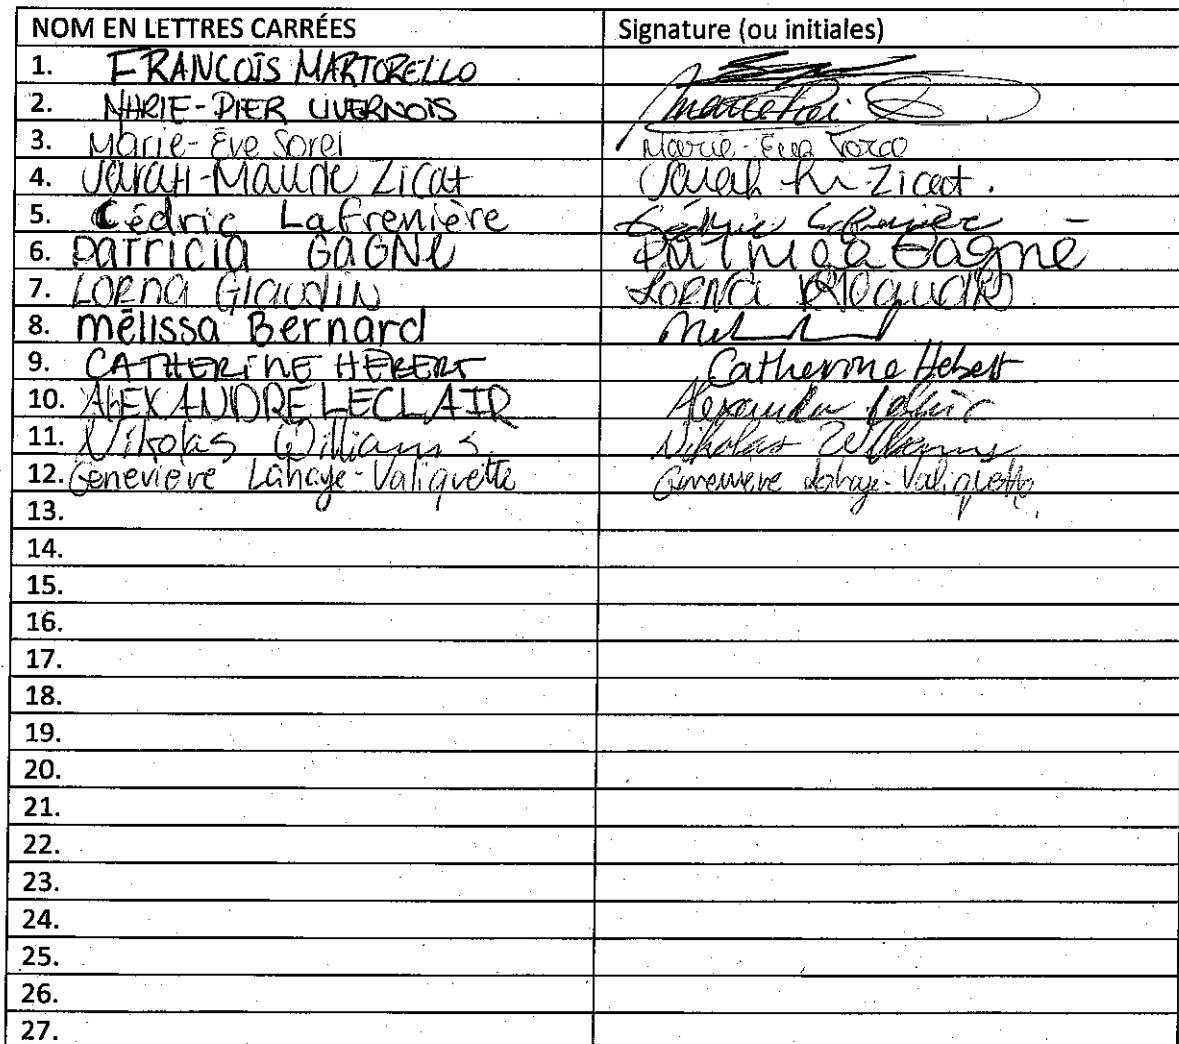 NOM EN LETTRES CARRÉES Signature (ou initiales)
1. FRANCOIS MARTORELLO
2. MARIE-PIER LIVERNOIS
3. Marie-Eve Sorel Marie-Eve
4. Sarah-Maude Zicat Sarah M-Zicat.
5. Cédric Lafrenière Cédric Lafrenière
6. PATRICIA GAGNE Patricia Gagne
7. LORNA Glaudin LORNA
8. mélissa Bernard
9. CATHERINE HEBERT Catherine Hebert
10. ALEXANDRE LECLAIR Alexandre Leclair
11. Nikolas Williams Nikolas Williams
12. Geneviève Lahaye-Valiquette Genevieve Lahaye-Valiquette
13.
14.
15.
16.
17.
18.
19.
20.
21.
22.
23.
24.
25.
26.
27.